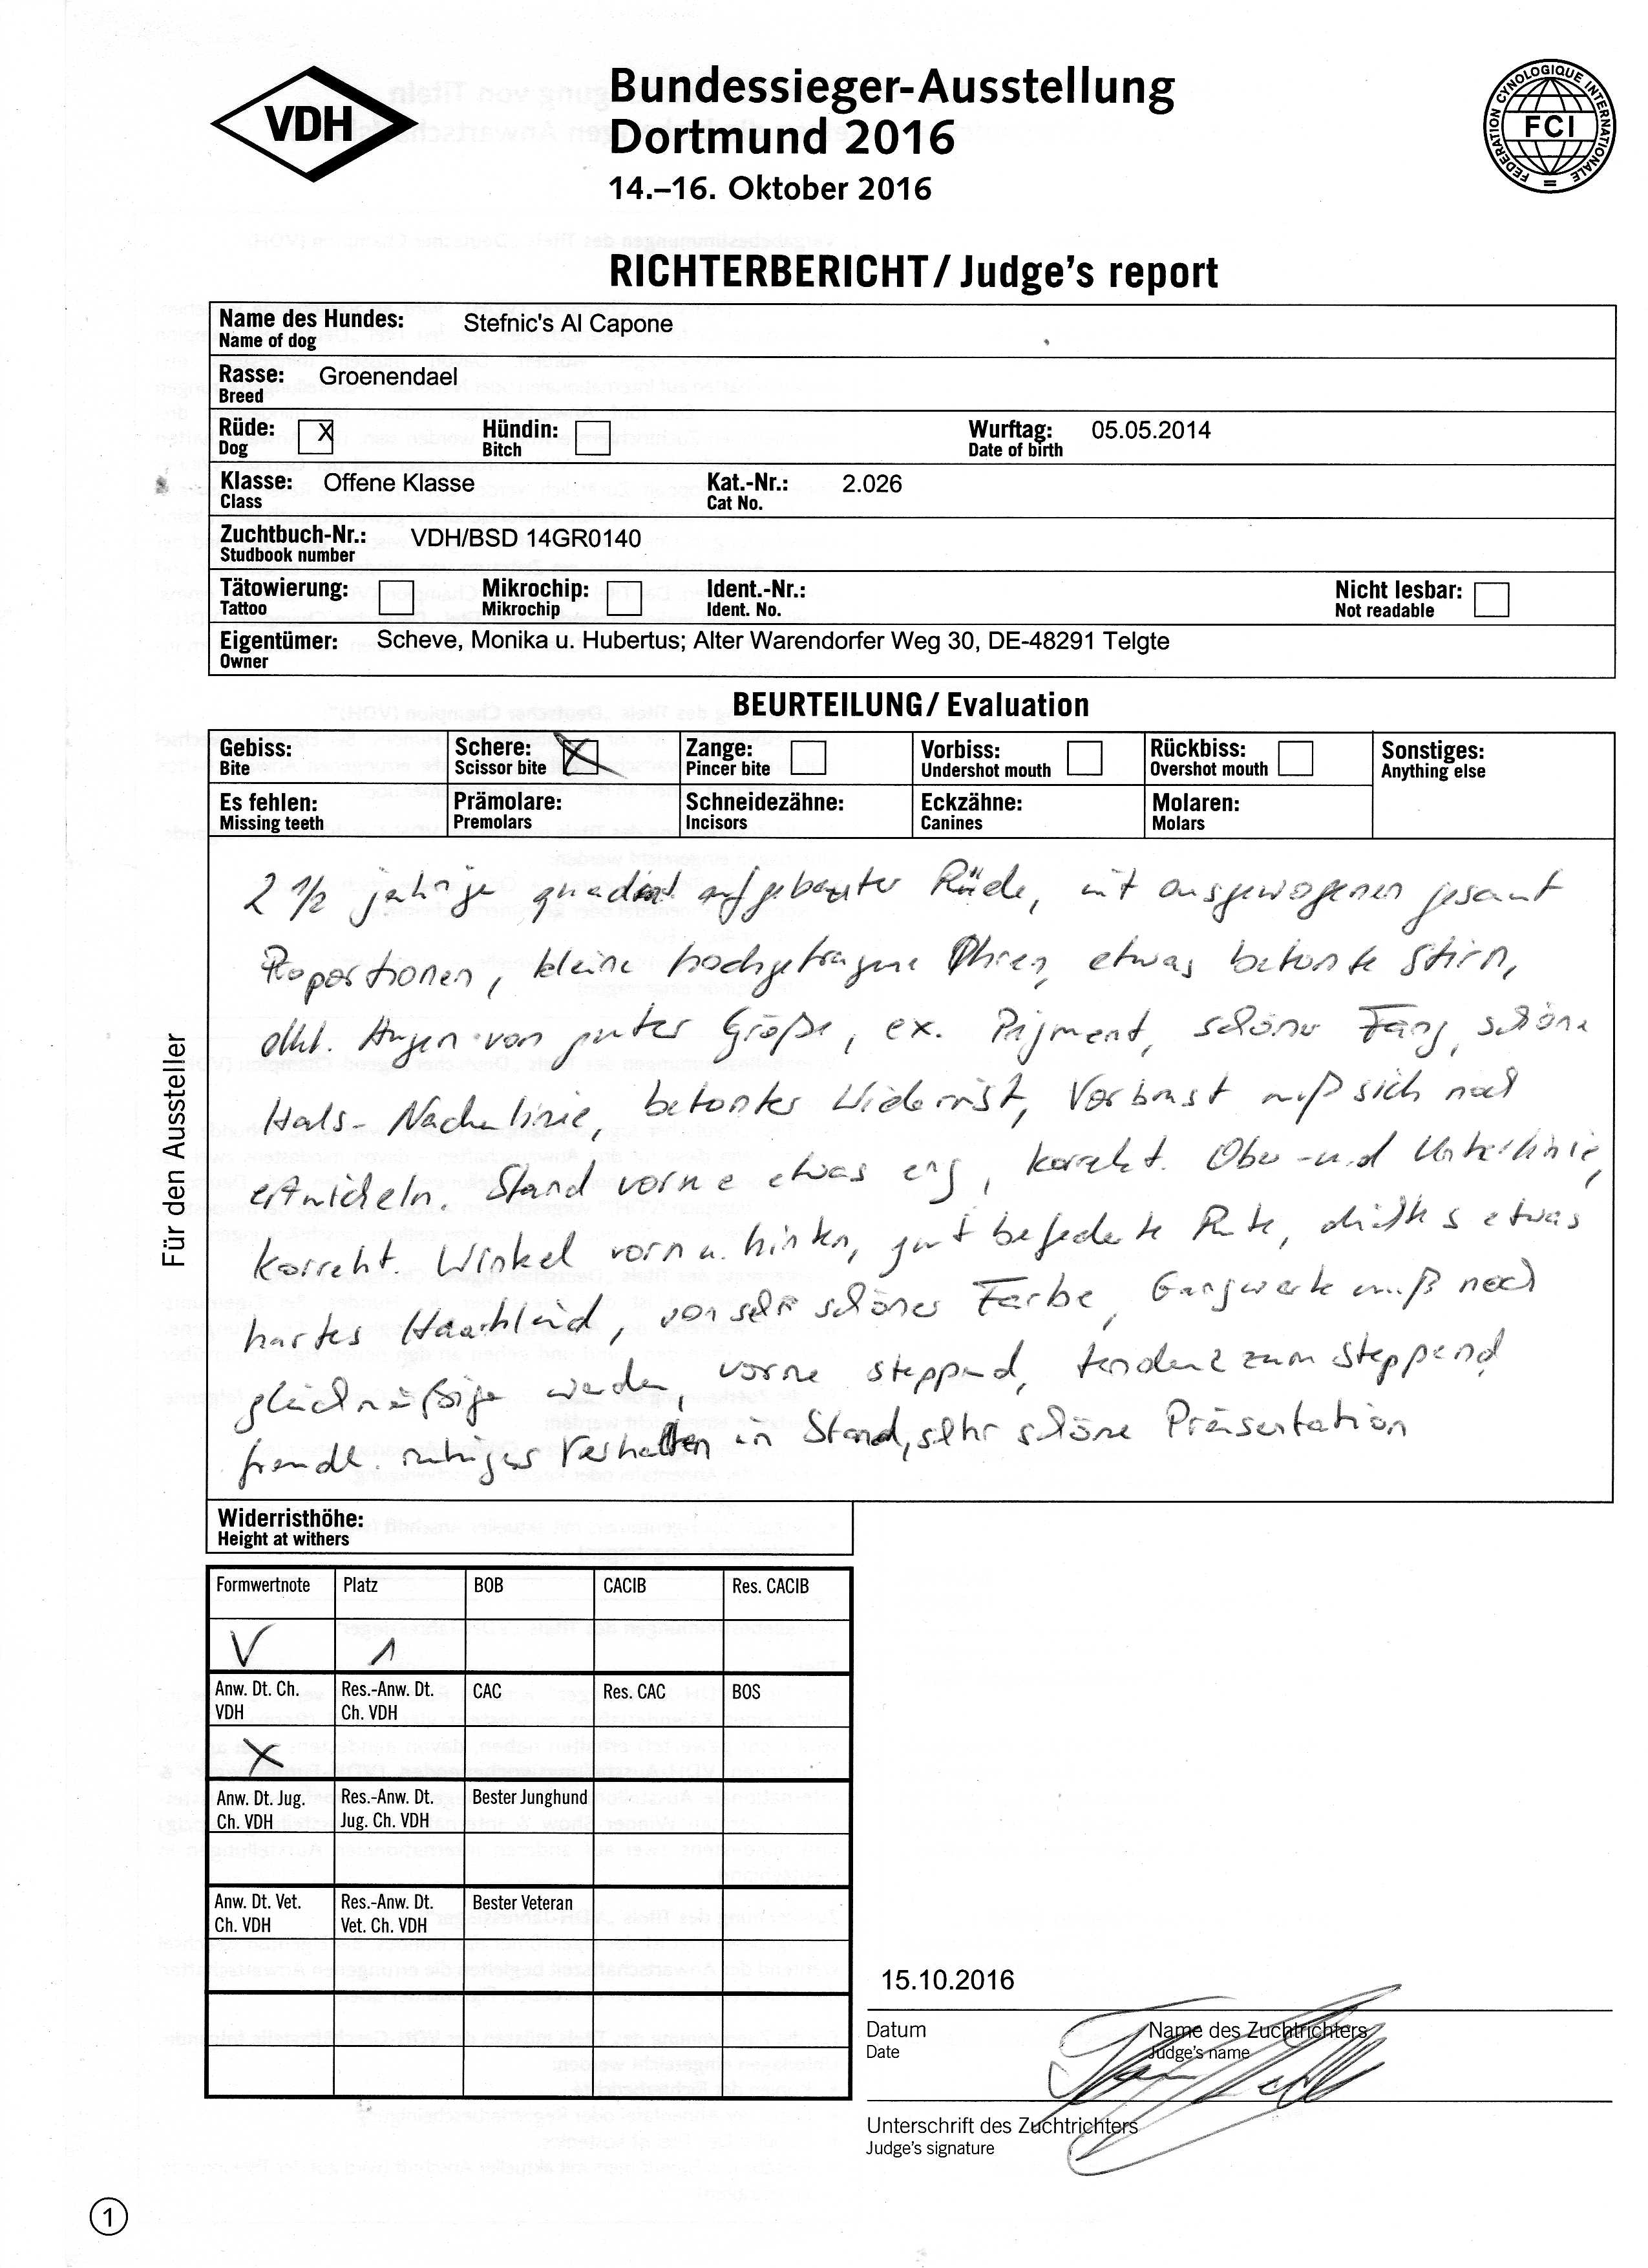 VDH
Bundessieger-Ausstellung
Dortmund 2016
14.–16. Oktober 2016
FEDERATION CYNOLOGIQUE INTERNATIONALE
FCI
RICHTERBERICHT / Judge's report
Name des Hundes: Stefnic's Al Capone
Name of dog
Rasse: Groenendael
Breed
Rüde: X Hündin: Wurftag: 05.05.2014
Dog Bitch Date of birth
Klasse: Offene Klasse Kat.-Nr.: 2.026
Class Cat No.
Zuchtbuch-Nr.: VDH/BSD 14GR0140
Studbook number
Tätowierung: Mikrochip: Ident.-Nr.: Nicht lesbar:
Tattoo Mikrochip Ident. No. Not readable
Eigentümer: Scheve, Monika u. Hubertus; Alter Warendorfer Weg 30, DE-48291 Telgte
Owner
BEURTEILUNG / Evaluation
Gebiss: Schere: X Zange: Vorbiss: Rückbiss: Sonstiges:
Bite Scissor bite Pincer bite Undershot mouth Overshot mouth Anything else
Es fehlen: Prämolare: Schneidezähne: Eckzähne: Molaren:
Missing teeth Premolars Incisors Canines Molars
Für den Aussteller
2 1/2 jährige quadrat aufgebauter Rüde, mit ausgewogenen gesamt
Proportionen, kleine hochgetragene Ohren, etwas betonte Stirn,
dkl. Augen von guter Größe, ex. Pigment, schöner Fang, schöne
Hals-Nackenlinie, betonter Widerrist, Vorbrust muß sich noch
entwickeln. Stand vorne etwas eng, korrekt. Ober- und Unterlinie,
korrekt. Winkel vorn u. hinten, gut befederte Rute, dichtes etwas
hartes Haarkleid, von sehr schöner Farbe, Gangwerk muß noch
gleichmäßiger werden, vorne steppend, tendenz zum steppend
freundl. ruhiges Verhalten in Stand, sehr schöne Präsentation
Widerristhöhe:
Height at withers
Formwertnote Platz BOB CACIB Res. CACIB
V 1
Anw. Dt. Ch. Res.-Anw. Dt. CAC Res. CAC BOS
VDH Ch. VDH
X
Anw. Dt. Jug. Res.-Anw. Dt. Bester Junghund
Ch. VDH Jug. Ch. VDH
Anw. Dt. Vet. Res.-Anw. Dt. Bester Veteran
Ch. VDH Vet. Ch. VDH
15.10.2016
Datum Name des Zuchtrichters
Date Judge's name
Unterschrift des Zuchtrichters
Judge's signature
1